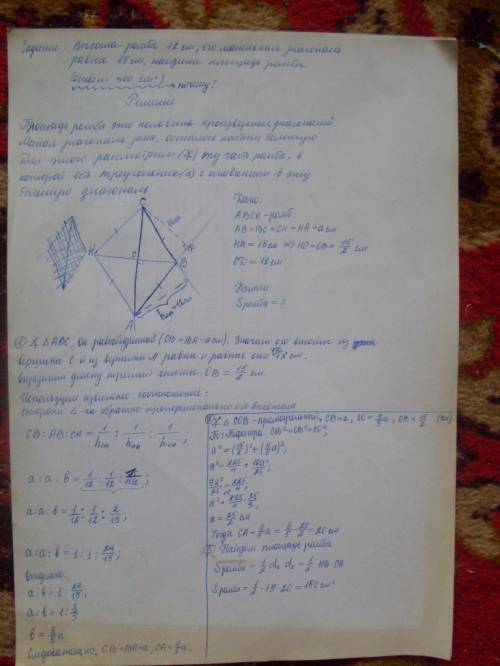 Задание Высота ромба 12 см, его маленькая диагональ
равна 15 см, найдите площадь ромба.
(ответ: 300 см²) почему?
Решение
Площадь ромба это половина произведения диагоналей
Малая диагональ дана, осталось найти большую
Для этого рассмотрим (X) ту часть ромба, в
которой есть треугольник (Δ) с основанием в эту
большую диагональ
Дано:
ABCH - ромб
AB=BC=CH=HA=a см
HB = 15 см => HO=OB= 15/2 см
CD = 12 см
Найти
Sромба = ?
C
H
O
B
A
12см
hна=12см
① X ΔABC. Он равнобедренный (CB=BA=a см). Значит его высоты из
вершины C и из вершины A равны и равны они 12 см.
Выразим длину третьей высоты OB = 15/2 см.
Используем известное соотношение:
стороны Δ-ка обратно пропорциональны его высотам
CB : BA : CA = 1/h : 1/h : 1/h ;
a : a : b = 1/12 : 1/12 : 1/15/2 ;
a : a : b = 1/12 : 1/12 : 2/15 ;
a : a : b = 1 : 1 : 24/15 ;
Отсюда:
a : b = 1 : 24/15 ;
a : b = 1 : 8/5
b = 8/5 a
Следовательно, CB=BA=a; CA=8/5 a.
② X Δ COB - прямоугольный, CB=a, CO=4/5 a, OB=15/2 (см)
По т. Пифагора CB²=OB²+CO²;
a² = (15/2)² + (4/5 a)²;
a² = 225/4 + 16a²/25 ;
9a²/25 = 225/4 ;
a² = 225/4 · 25/9 ;
a = 25/2 см
Тогда CA = 8/5 a = 8/5 · 25/2 = 20 см
③ Найдём площадь ромба
Sромба = 1/2 d₁ d₂ = 1/2 · HB · CA
Sромба = 1/2 · 15 · 20 = 150 см²